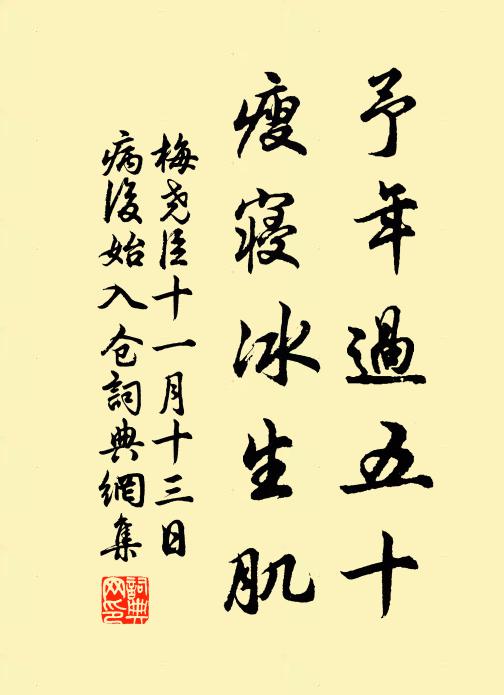 予年過五十
瘦寝冰生肌
梅尧臣十一月十三日
病後始入仓詞典網集
詞典网印